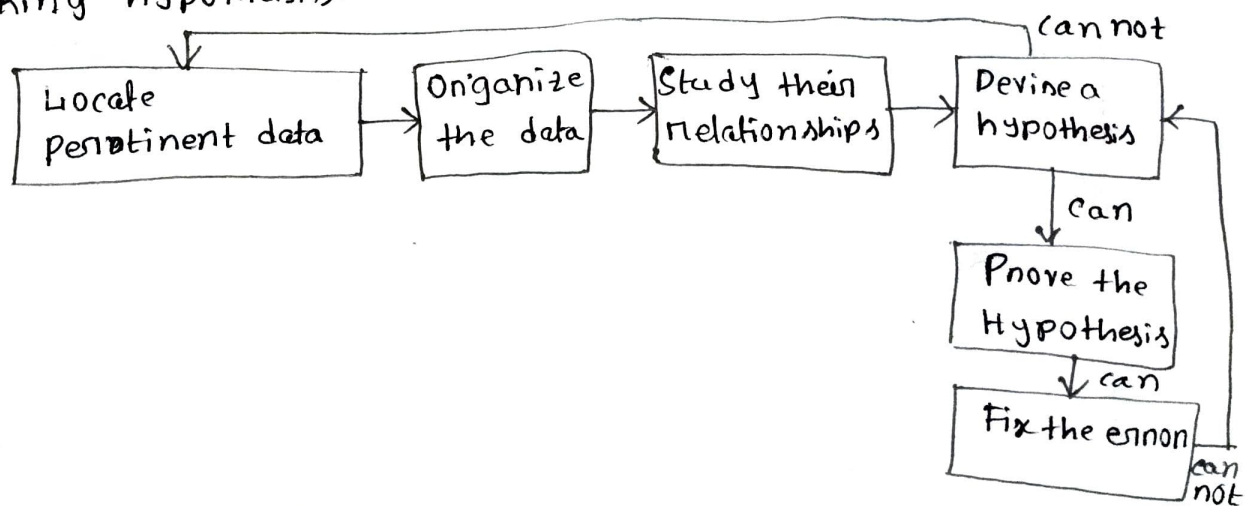 can not
Locate
pertinent data
Organize
the data
Study their
relationships
Devise a
hypothesis
can
Prove the
Hypothesis
can
Fix the error
can
not